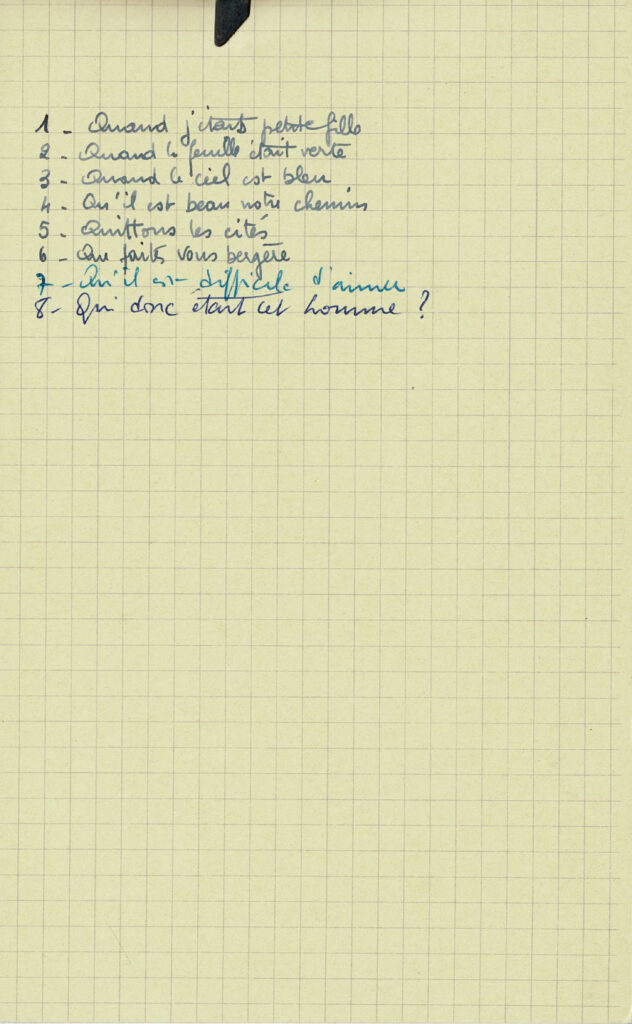 1 - Quand j'étais petite fille
2 - Quand la feuille était verte
3 - Quand le ciel est bleu
4 - Qu'il est beau notre chemin
5 - Quittons les cités
6 - Que faites vous bergère
7 - Qu'il est difficile d'aimer
8 - Qui donc était cet homme ?